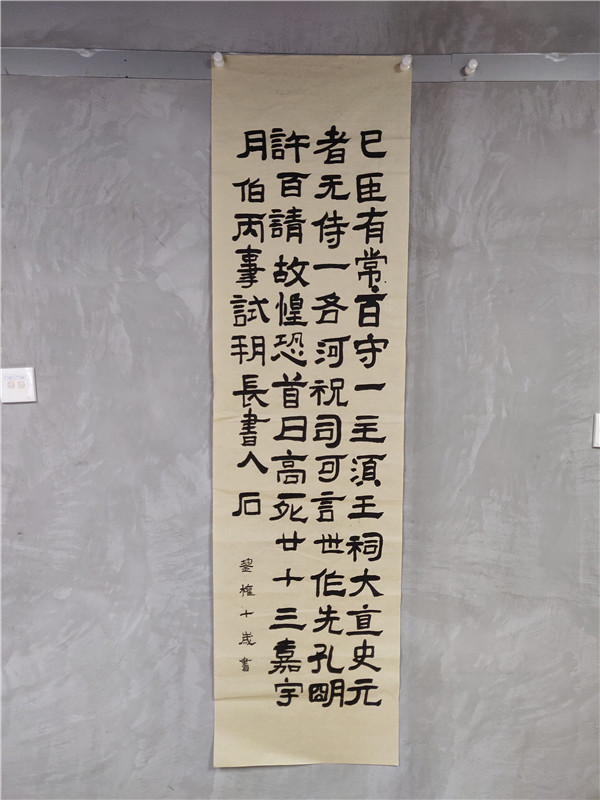 巳臣有常百守一主須王祠大亘史元
者无侍一各河祝司可言世作先孔明
許百請故惶恐首日高死廿十三嘉字
月伯丙事試羽長書人石
權十歲書